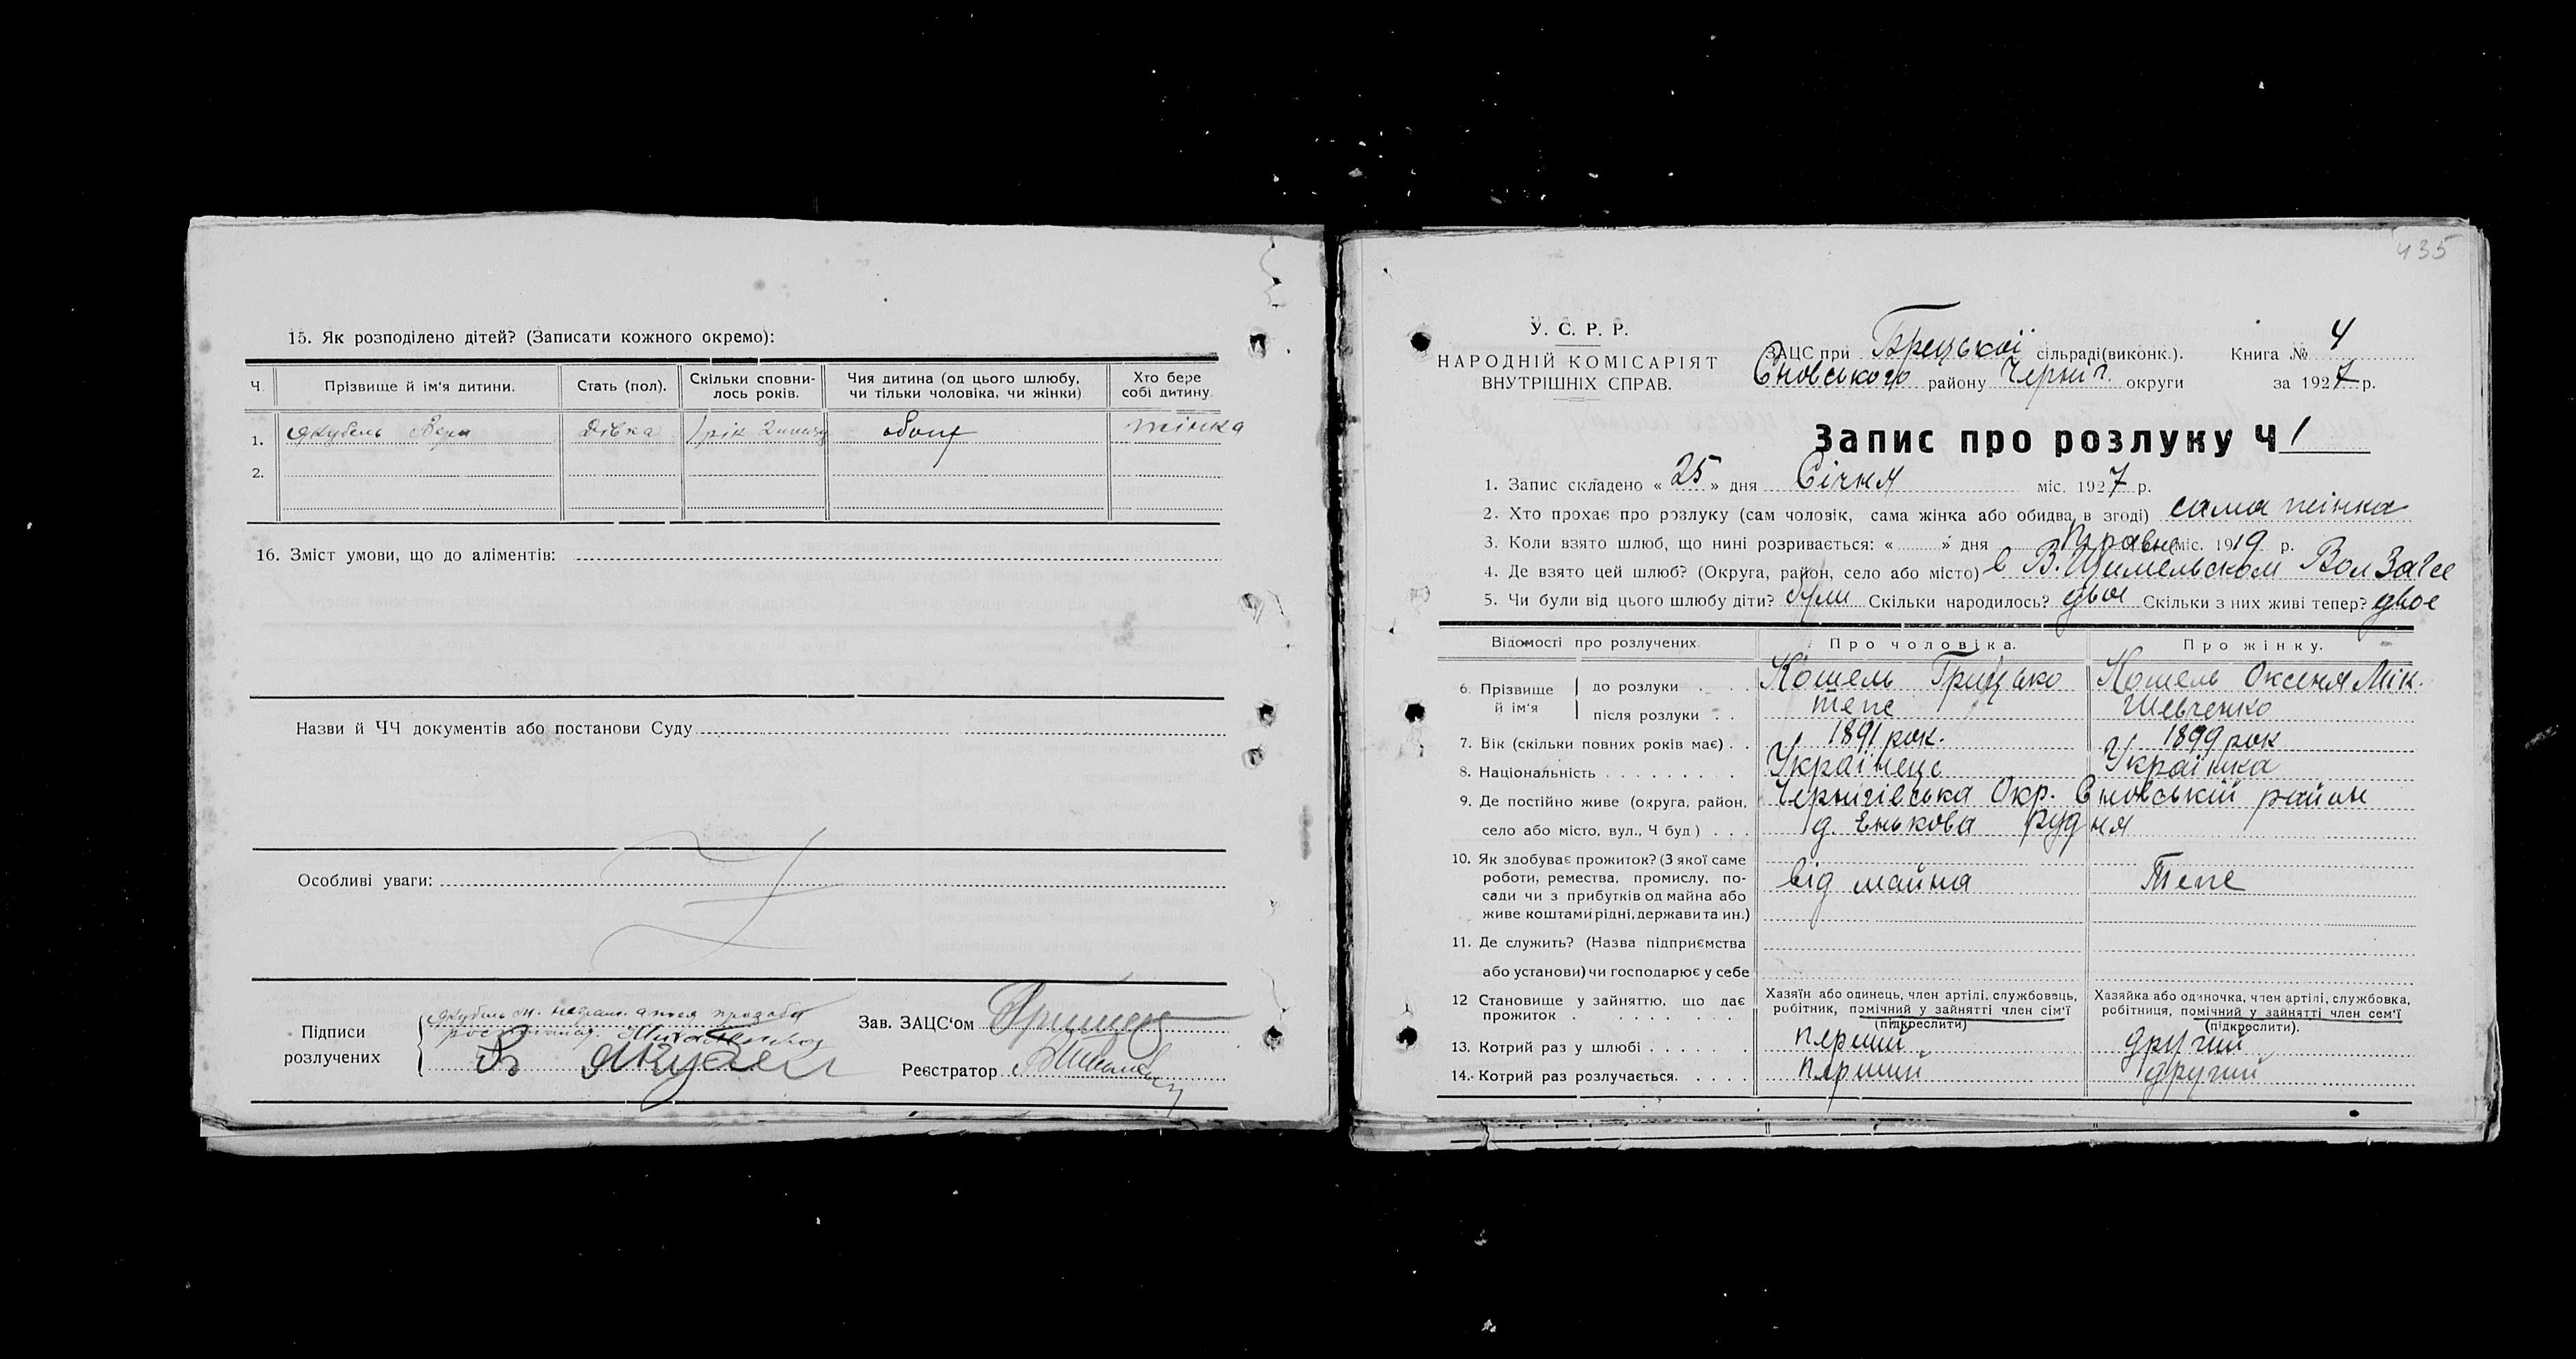 15. Як розподілено дітей? (Записати кожного окремо):
Ч. Прізвище й ім'я дитини. Стать (пол). Скільки сповнилось років. Чия дитина (од цього шлюбу, чи тільки чоловіка, чи жінки) Хто бере собі дитину.
1. Якубель Вера Дівка 1 рік 2 обоіх жінка
2.
16. Зміст умови, що до аліментів:
Назви й ЧЧ документів або постанови Суду
Особливі уваги:
Підписи розлучених
Якубель
Зав. ЗАЦС'ом
Реєстратор
435
У. С. Р. Р.
НАРОДНІЙ КОМІСАРІЯТ
ВНУТРІШНІХ СПРАВ.
ЗАЦС при Брецькой сільраді(виконк.). Книга № 4
Сновського району Черниг. округи за 1927 р.
Запис про розлуку Ч 1
1. Запис складено « 25 » дня Січня міс. 1927 р.
2. Хто прохає про розлуку (сам чоловік, сама жінка або обидва в згоді) сама жінка
3. Коли взято шлюб, що нині розривається: « » дня Травне міс. 1919 р.
4. Де взято цей шлюб? (Округа, район, село або місто) в В. Щимельском Вол Загсе
5. Чи були від цього шлюбу діти? були Скільки народилось? двое Скільки з них живі тепер? двое
Відомості про розлучених. Про чоловіка. Про жінку.
6. Прізвище й ім'я до розлуки Кошель Грицько Кошель Оксеня Мік.
після розлуки теж Шевченко
7. Вік (скільки повних років має) 1891 рок. 1899 рок
8. Національність Українець Українка
9. Де постійно живе (округа, район, Чернигівська Окр. Сновській район
село або місто, вул., Ч буд) д. Енькова рудня
10. Як здобуває прожиток? (З якої саме
роботи, ремества, промислу, по-
сади чи з прибутків од майна або
живе коштами рідні, держави та ин.)
від майна Теж
11. Де служить? (Назва підприємства
або установи) чи господарює у себе
12 Становище у зайняттю, що дає прожиток
Хазяїн або одинець, член артілі, службовець, робітник, помічний у зайнятті член сім'ї (підкреслити)
Хазяйка або одиночка, член артілі, службовка, робітниця, помічний у зайнятті член сем'ї (підкреслити).
13. Котрий раз у шлюбі перший другий
14. Котрий раз розлучається. перший другий